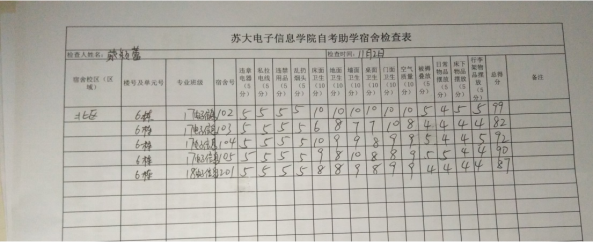 苏大电子信息学院自考助学宿舍检查表
检查人姓名: 检查时间: 11月2日
宿舍校区（区域） 楼号及单元号 专业班级 宿舍号 违章电器（5分） 私拉电线（5分） 违禁用品（5分） 乱扔烟头（5分） 床面卫生（10分） 地面卫生（10分） 墙面卫生（10分） 桌面卫生（10分） 门面卫生（10分） 空气质量（10分） 被褥叠放（5分） 日常物品摆放（5分） 床下物品摆放（5分） 行李架物品摆放（5分） 总得分 备注
北区 6栋 102 5 5 5 5 10 10 10 10 10 10 5 4 5 5 99
6栋 103 5 5 5 5 6 8 7 7 10 8 4 4 4 4 82
6栋 104 5 5 5 5 10 9 9 8 9 9 5 4 4 5 92
6栋 105 5 5 5 5 9 8 10 8 8 9 5 5 4 4 90
6栋 201 5 5 5 5 8 8 9 8 9 9 4 4 4 4 87